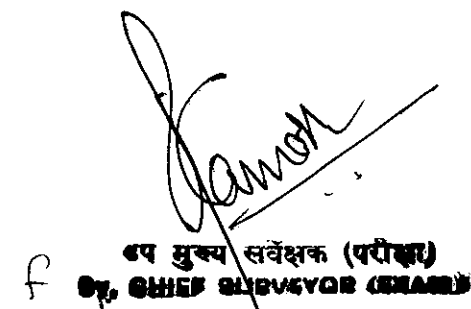 उप मुख्य सर्वेक्षक (परीक्षा)
f Dy. CHIEF SURVEYOR (EXAM)